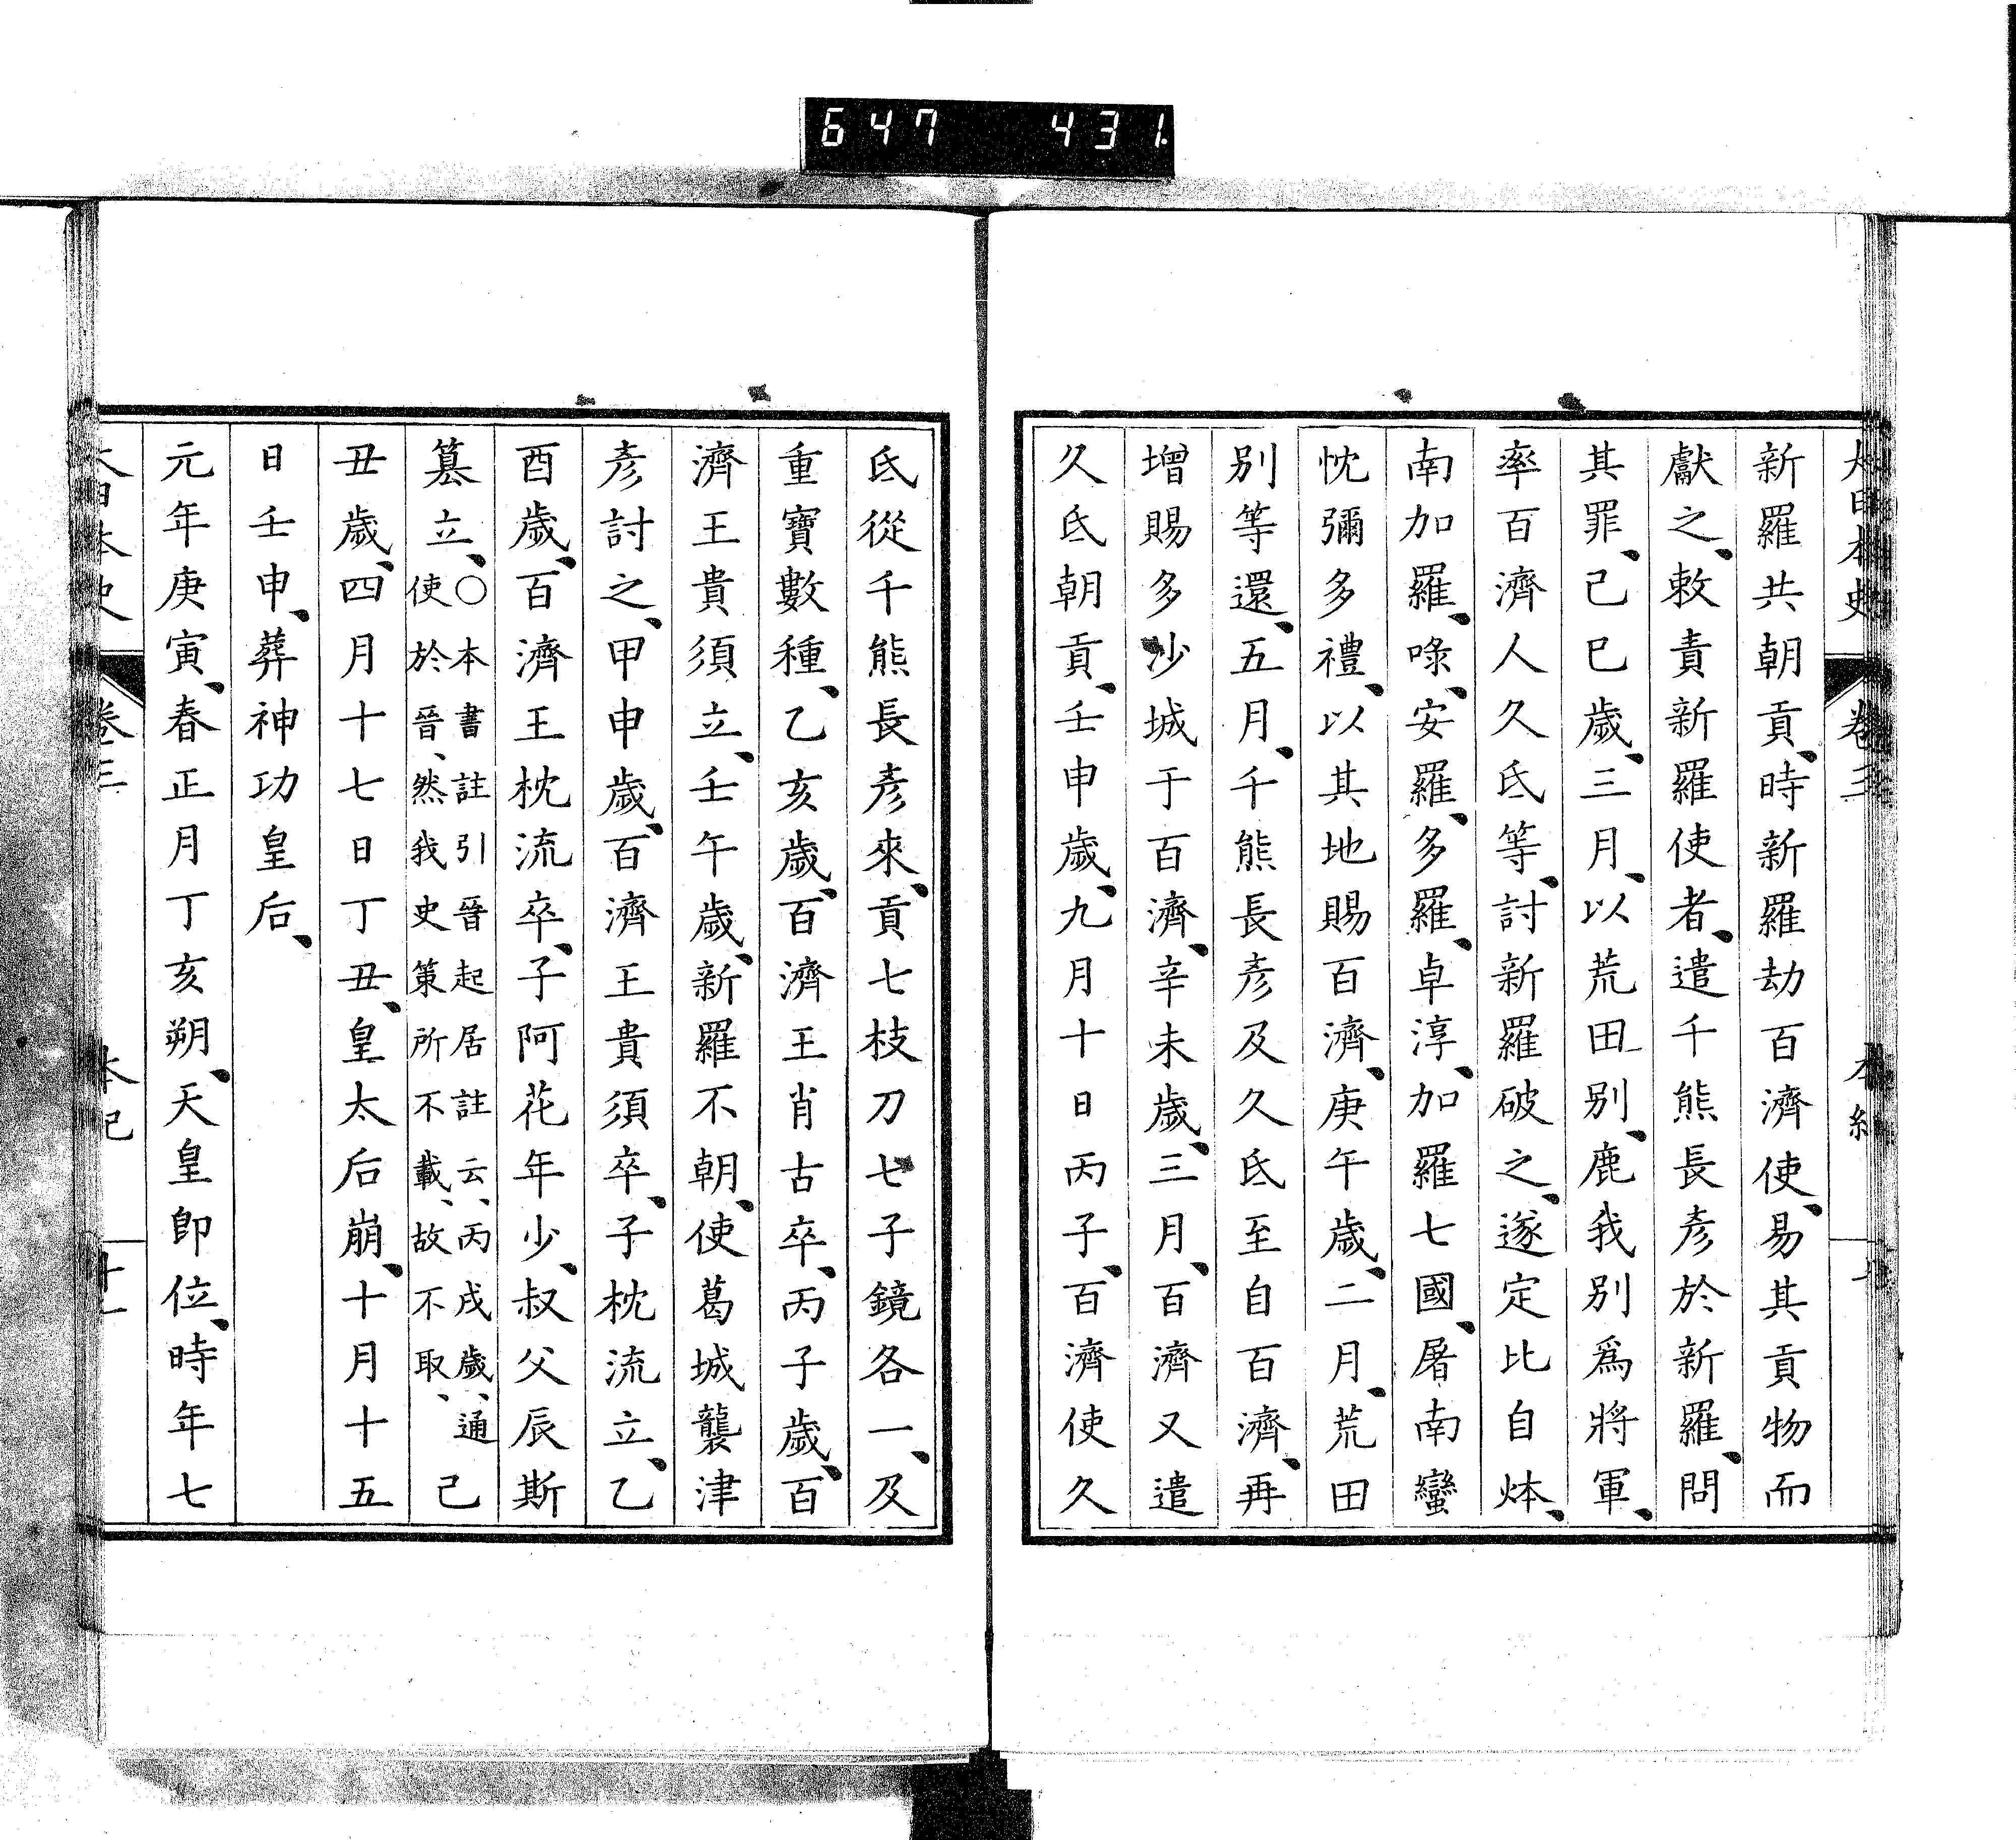 647 431
大日本史 卷三 本紀
新羅共朝貢、時新羅劫百濟使、易其貢物而
獻之、敕責新羅使者、遣千熊長彥於新羅、問
其罪、己巳歲、三月、以荒田別、鹿我別爲將軍、
率百濟人久氐等、討新羅破之、遂定比自㶱、
南加羅、㖨、安羅、多羅、卓淳、加羅七國、屠南蠻
忱彌多禮、以其地賜百濟、庚午歲、二月、荒田
別等還、五月、千熊長彥及久氐至自百濟、再
增賜多沙城于百濟、辛未歲、三月、百濟又遣
久氐朝貢、壬申歲、九月十日丙子、百濟使久
氐從千熊長彥來、貢七枝刀七子鏡各一、及
重寶數種、乙亥歲、百濟王肖古卒、丙子歲、百
濟王貴須立、壬午歲、新羅不朝、使葛城襲津
彥討之、甲申歲、百濟王貴須卒、子枕流立、乙
酉歲、百濟王枕流卒、子阿花年少、叔父辰斯
簒立、○本書註引晉起居註云、丙戌歲、通使於晉、然我史策所不載、故不取、己
丑歲、四月十七日丁丑、皇太后崩、十月十五
日壬申、葬神功皇后、
元年庚寅、春正月丁亥朔、天皇卽位、時年七
大日本史 卷三 本紀 十一